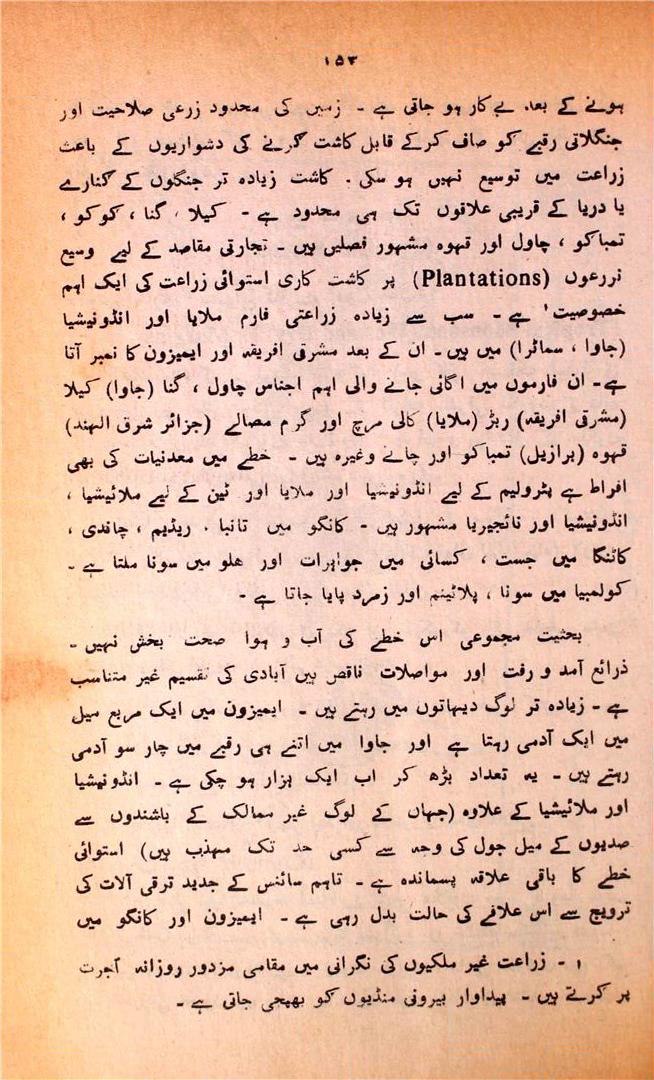 ۱۵۳
ہونے کے بعد بے کار ہو جاتی ہے ۔ زمیں کی محدود زرعی صلاحیت اور
جنگلاتی رقبے کو صاف کرکے قابل کاشت کرنے کی دشواریوں کے باعث
زراعت میں توسیع نہیں ہو سکی ۔ کاشت زیادہ تر جنگوں کے کنارے
یا دریا کے قریبی علاقوں تک ہی محدود ہے ۔ کیلا ، گنا ، کوکو ،
تمباکو ، چاول اور قہوہ مشہور فصلیں ہیں ۔ تجارتی مقاصد کے لیے وسیع
زرعوں (Plantations) پر کاشت کاری استوائی زراعت کی ایک اہم
خصوصیت' ہے ۔ سب سے زیادہ زراعتی فارم ملایا اور انڈونیشیا
(جاوا ، سماٹرا) میں ہیں ۔ ان کے بعد مشرقی افریقہ اور ایمیزون کا نمبر آتا
ہے ۔ ان فارموں میں اگائی جانے والی اہم اجناس چاول ، گنا (جاوا) کیلا
(مشرقی افریقہ) ربڑ (ملایا) کالی مرچ اور گرم مصالے (جزائر شرق الہند)
قہوہ (برازیل) تمباکو اور چائے وغیرہ ہیں ۔ خطے میں معدنیات کی بھی
افراط ہے پٹرولیم کے لیے انڈونیشیا اور ملایا اور ٹین کے لیے ملائیشیا ،
انڈونیشیا اور نائجیریا مشہور ہیں ۔ کانگو میں تانبا ، ریڈیم ، چاندی ،
کاٹنگا میں جست ، کسائی میں جواہرات اور ھلو میں سونا ملتا ہے ۔
کولمبیا میں سونا ، پلاٹینم اور زمرد پایا جاتا ہے ۔
بحثیت مجموعی اس خطے کی آب و ہوا صحت بخش نہیں ۔
ذرائع آمد و رفت اور مواصلات ناقص ہیں آبادی کی تقسیم غیر متناسب
ہے ۔ زیادہ تر لوگ دیہاتوں میں رہتے ہیں ۔ ایمیزون میں ایک مربع میل
میں ایک آدمی رہتا ہے اور جاوا میں اتنے ہی رقبے میں چار سو آدمی
رہتے ہیں ۔ یہ تعداد بڑھ کر اب ایک ہزار ہو چکی ہے ۔ انڈونیشیا
اور ملائیشیا کے علاوہ (جہاں کے لوگ غیر ممالک کے باشندوں سے
صدیوں کے میل جول کی وجہ سے کسی حد تک مہذب ہیں) استوائی
خطے کا باقی علاقہ پسماندہ ہے ۔ تاہم سائنس کے جدید ترقی آلات کی
ترویج سے اس علاقے کی حالت بدل رہی ہے ۔ ایمیزون اور کانگو میں
۱ ۔ زراعت غیر ملکیوں کی نگرانی میں مقامی مزدور روزانہ اجرت
پر کرتے ہیں ۔ پیداوار بیرونی منڈیوں کو بھیجی جاتی ہے ۔